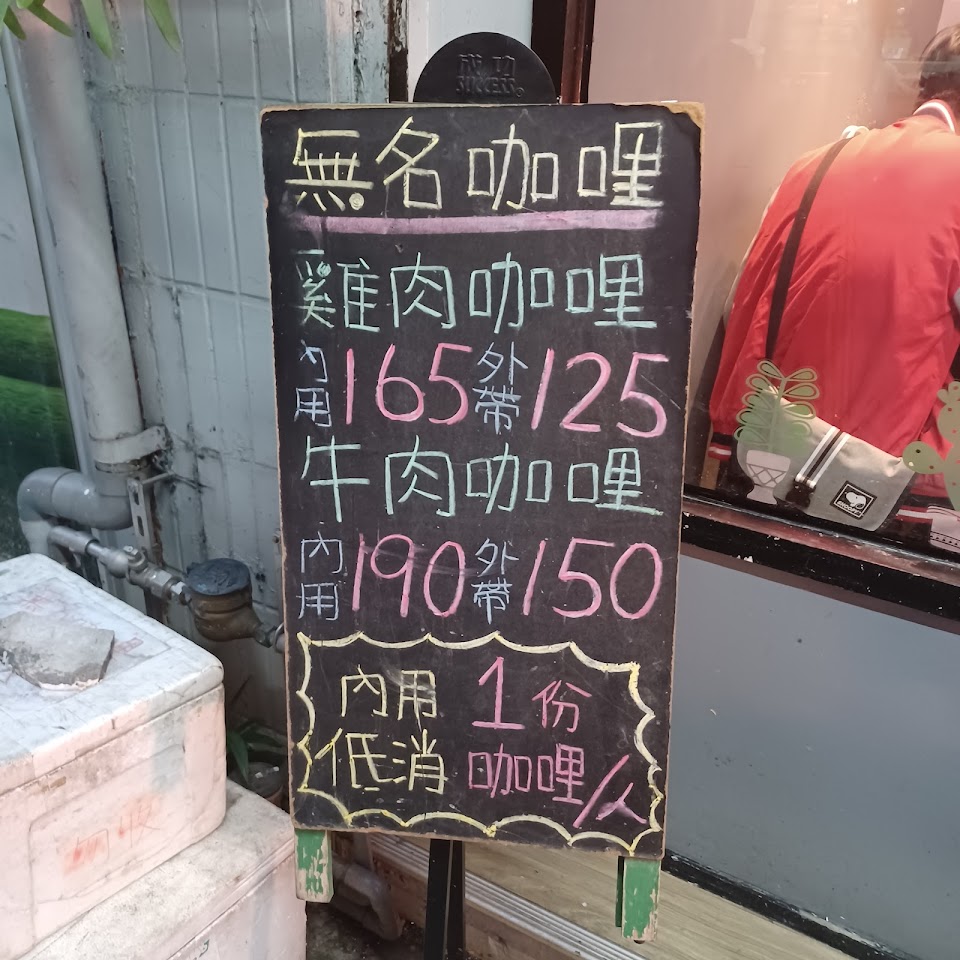 成功
SUCCESS
無名咖哩
雞肉咖哩
內用165 外帶125
牛肉咖哩
內用190 外帶150
內用 1份
低消 咖哩/人
SNOOPY